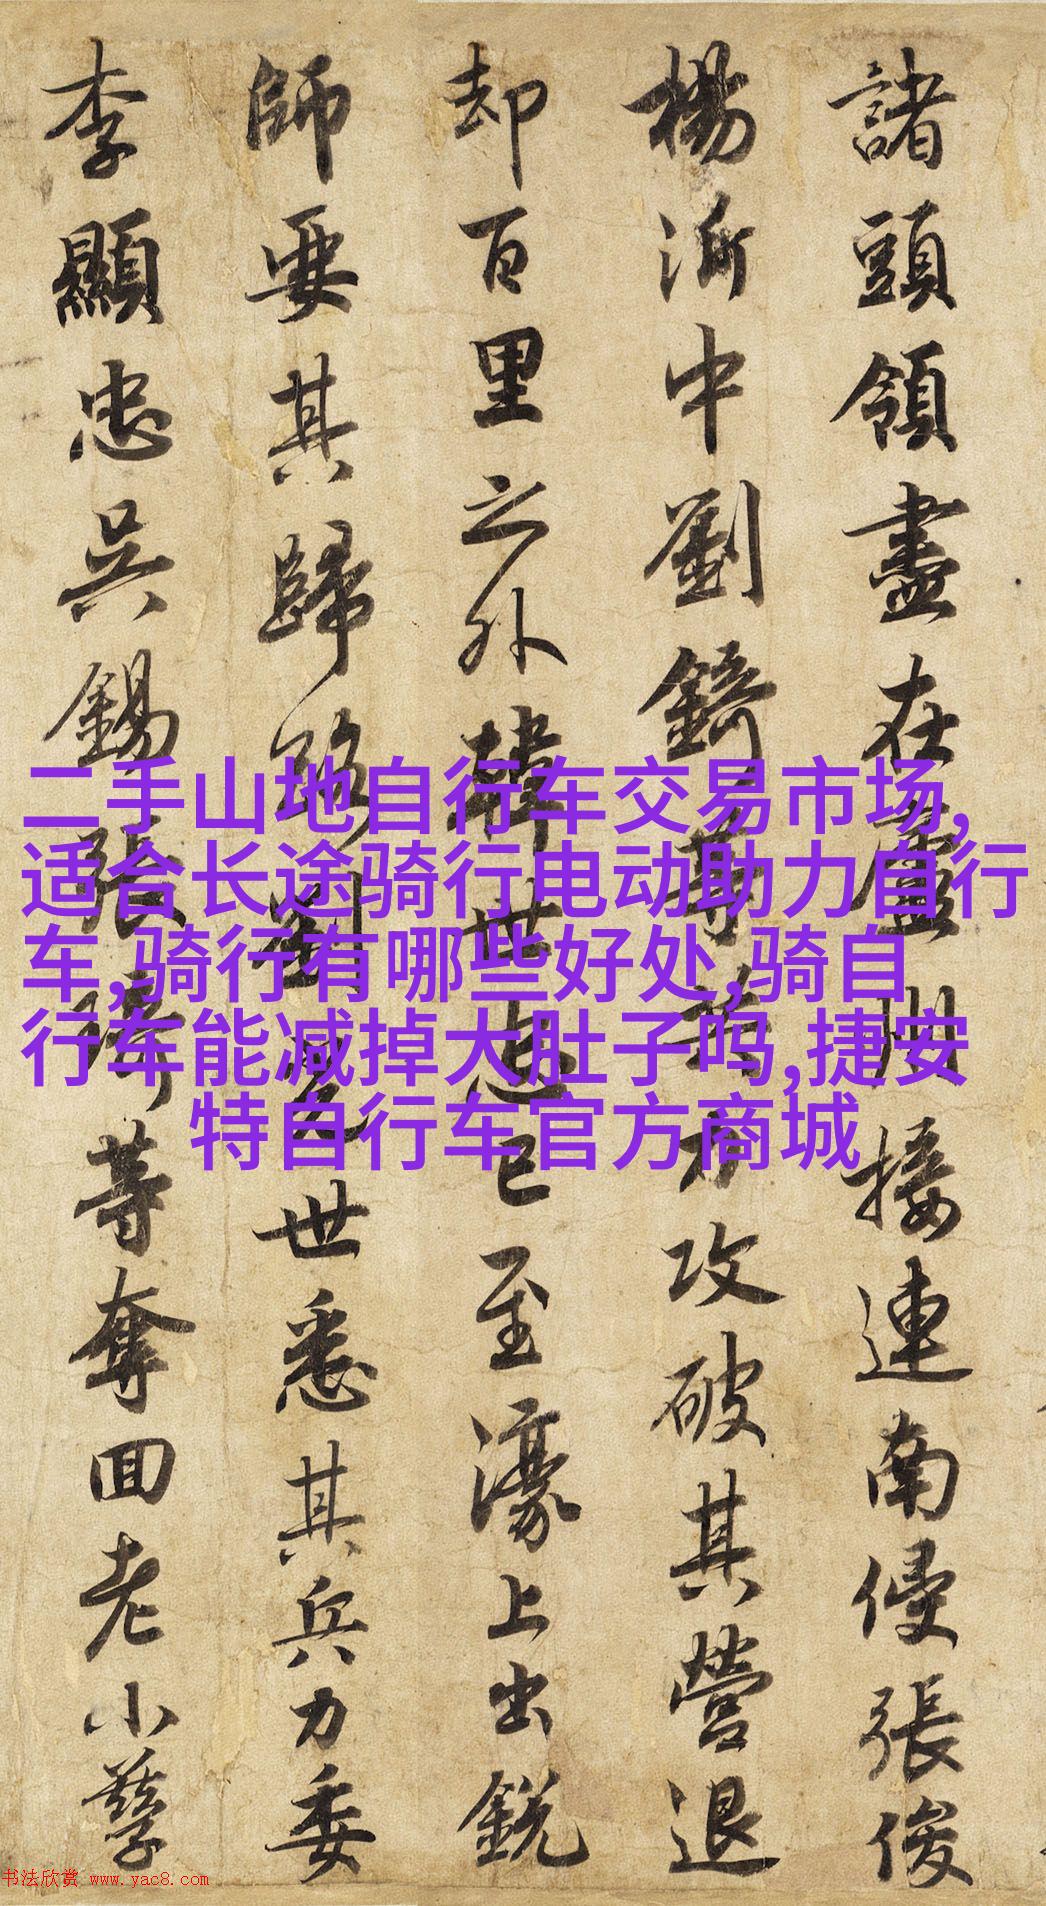 諸頭領盡在廬州接連南侵張俊
楊沂中劉錡等共力攻破其營退
却百里之外韓世忠已至濠上出銳
師要其歸路劉光世悉其兵力委
李顯忠吳錫張琦等奪回老小孳
二手山地自行车交易市场,
适合长途骑行电动助力自行
车,骑行有哪些好处,骑自
行车能减掉大肚子吗,捷安
特自行车官方商城
书法欣赏 www.yac8.com